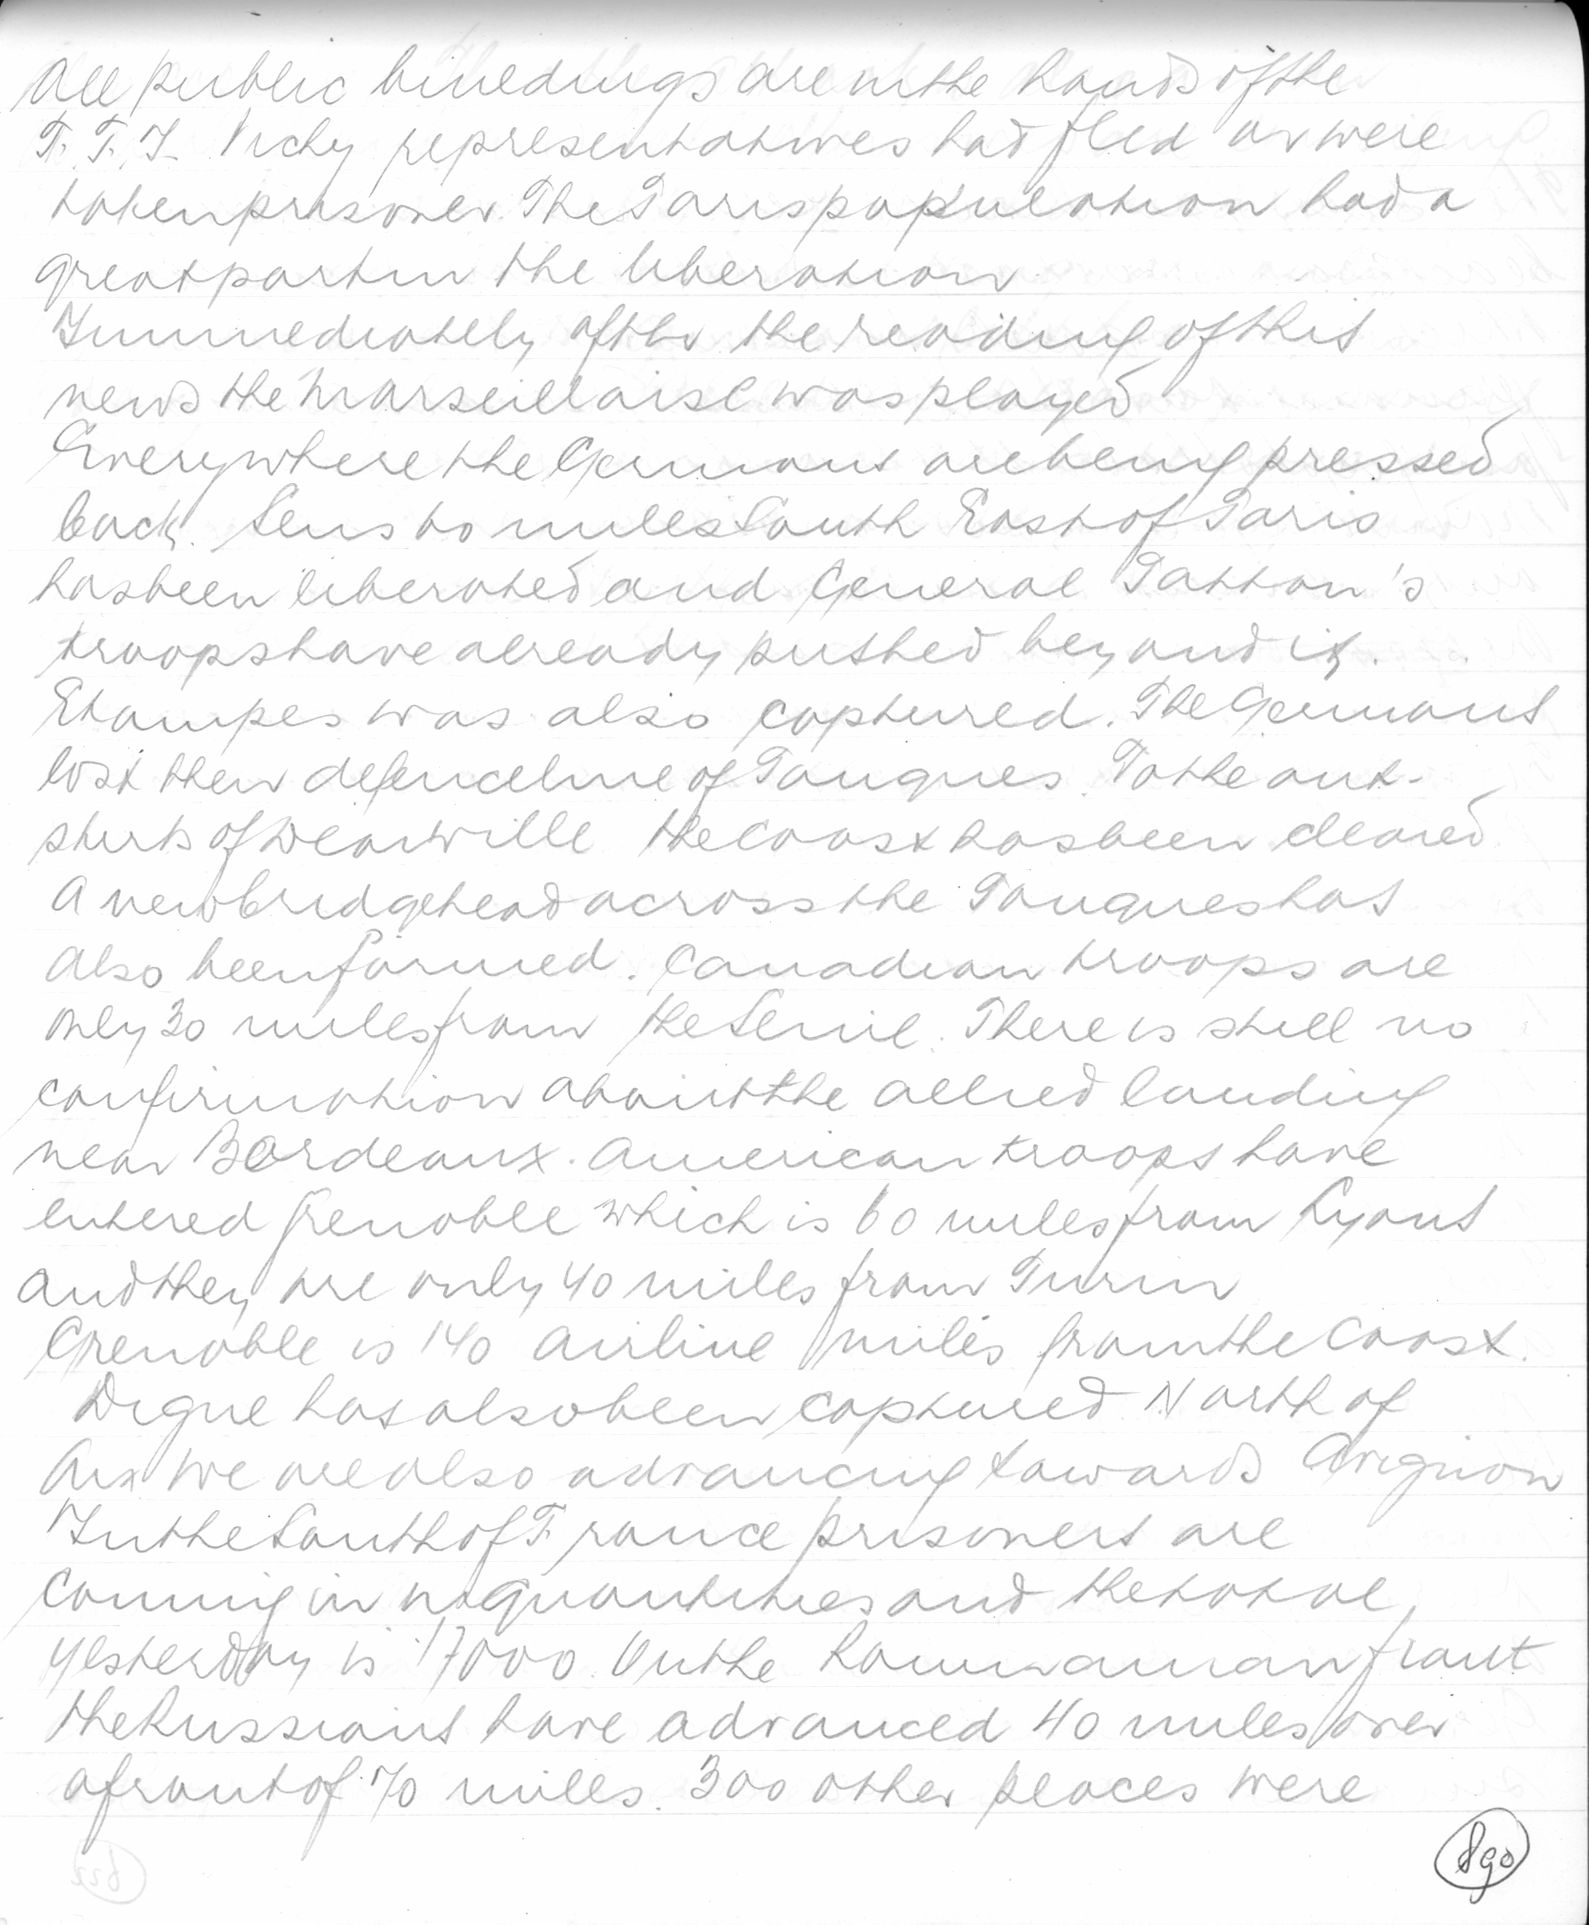 All public buildings are in the hands of the
F. F. I. Vichy representatives had fled or were
taken prisoner. The Paris population had a
great part in the liberation
Immediately after the reading of this
news the Marseillaise was played
Everywhere the Germans are being pressed
back. Sens 60 miles South East of Paris
has been liberated and General Patton's
troops have already pushed beyond it.
Etampes was also captured. The Germans
lost their defence line of Touques. To the out-
skirts of Deauville the coast has been cleared
A new bridgehead across the Touques has
also been formed. Canadian troops are
only 30 miles from the Seine. There is still no
confirmation about the allied landing
near Bordeaux. American troops have
entered Grenoble which is 60 miles from Lyons
and they are only 40 miles from Turin
Grenoble is 140 airline miles from the coast.
Digne has also been captured North of
Aix we are also advancing towards Avignon
In the South of France prisoners are
coming in in quantities and the total
yesterday is 17000. On the Roumanian front
the Russians have advanced 40 miles over
a front of 70 miles. 300 other places were
890